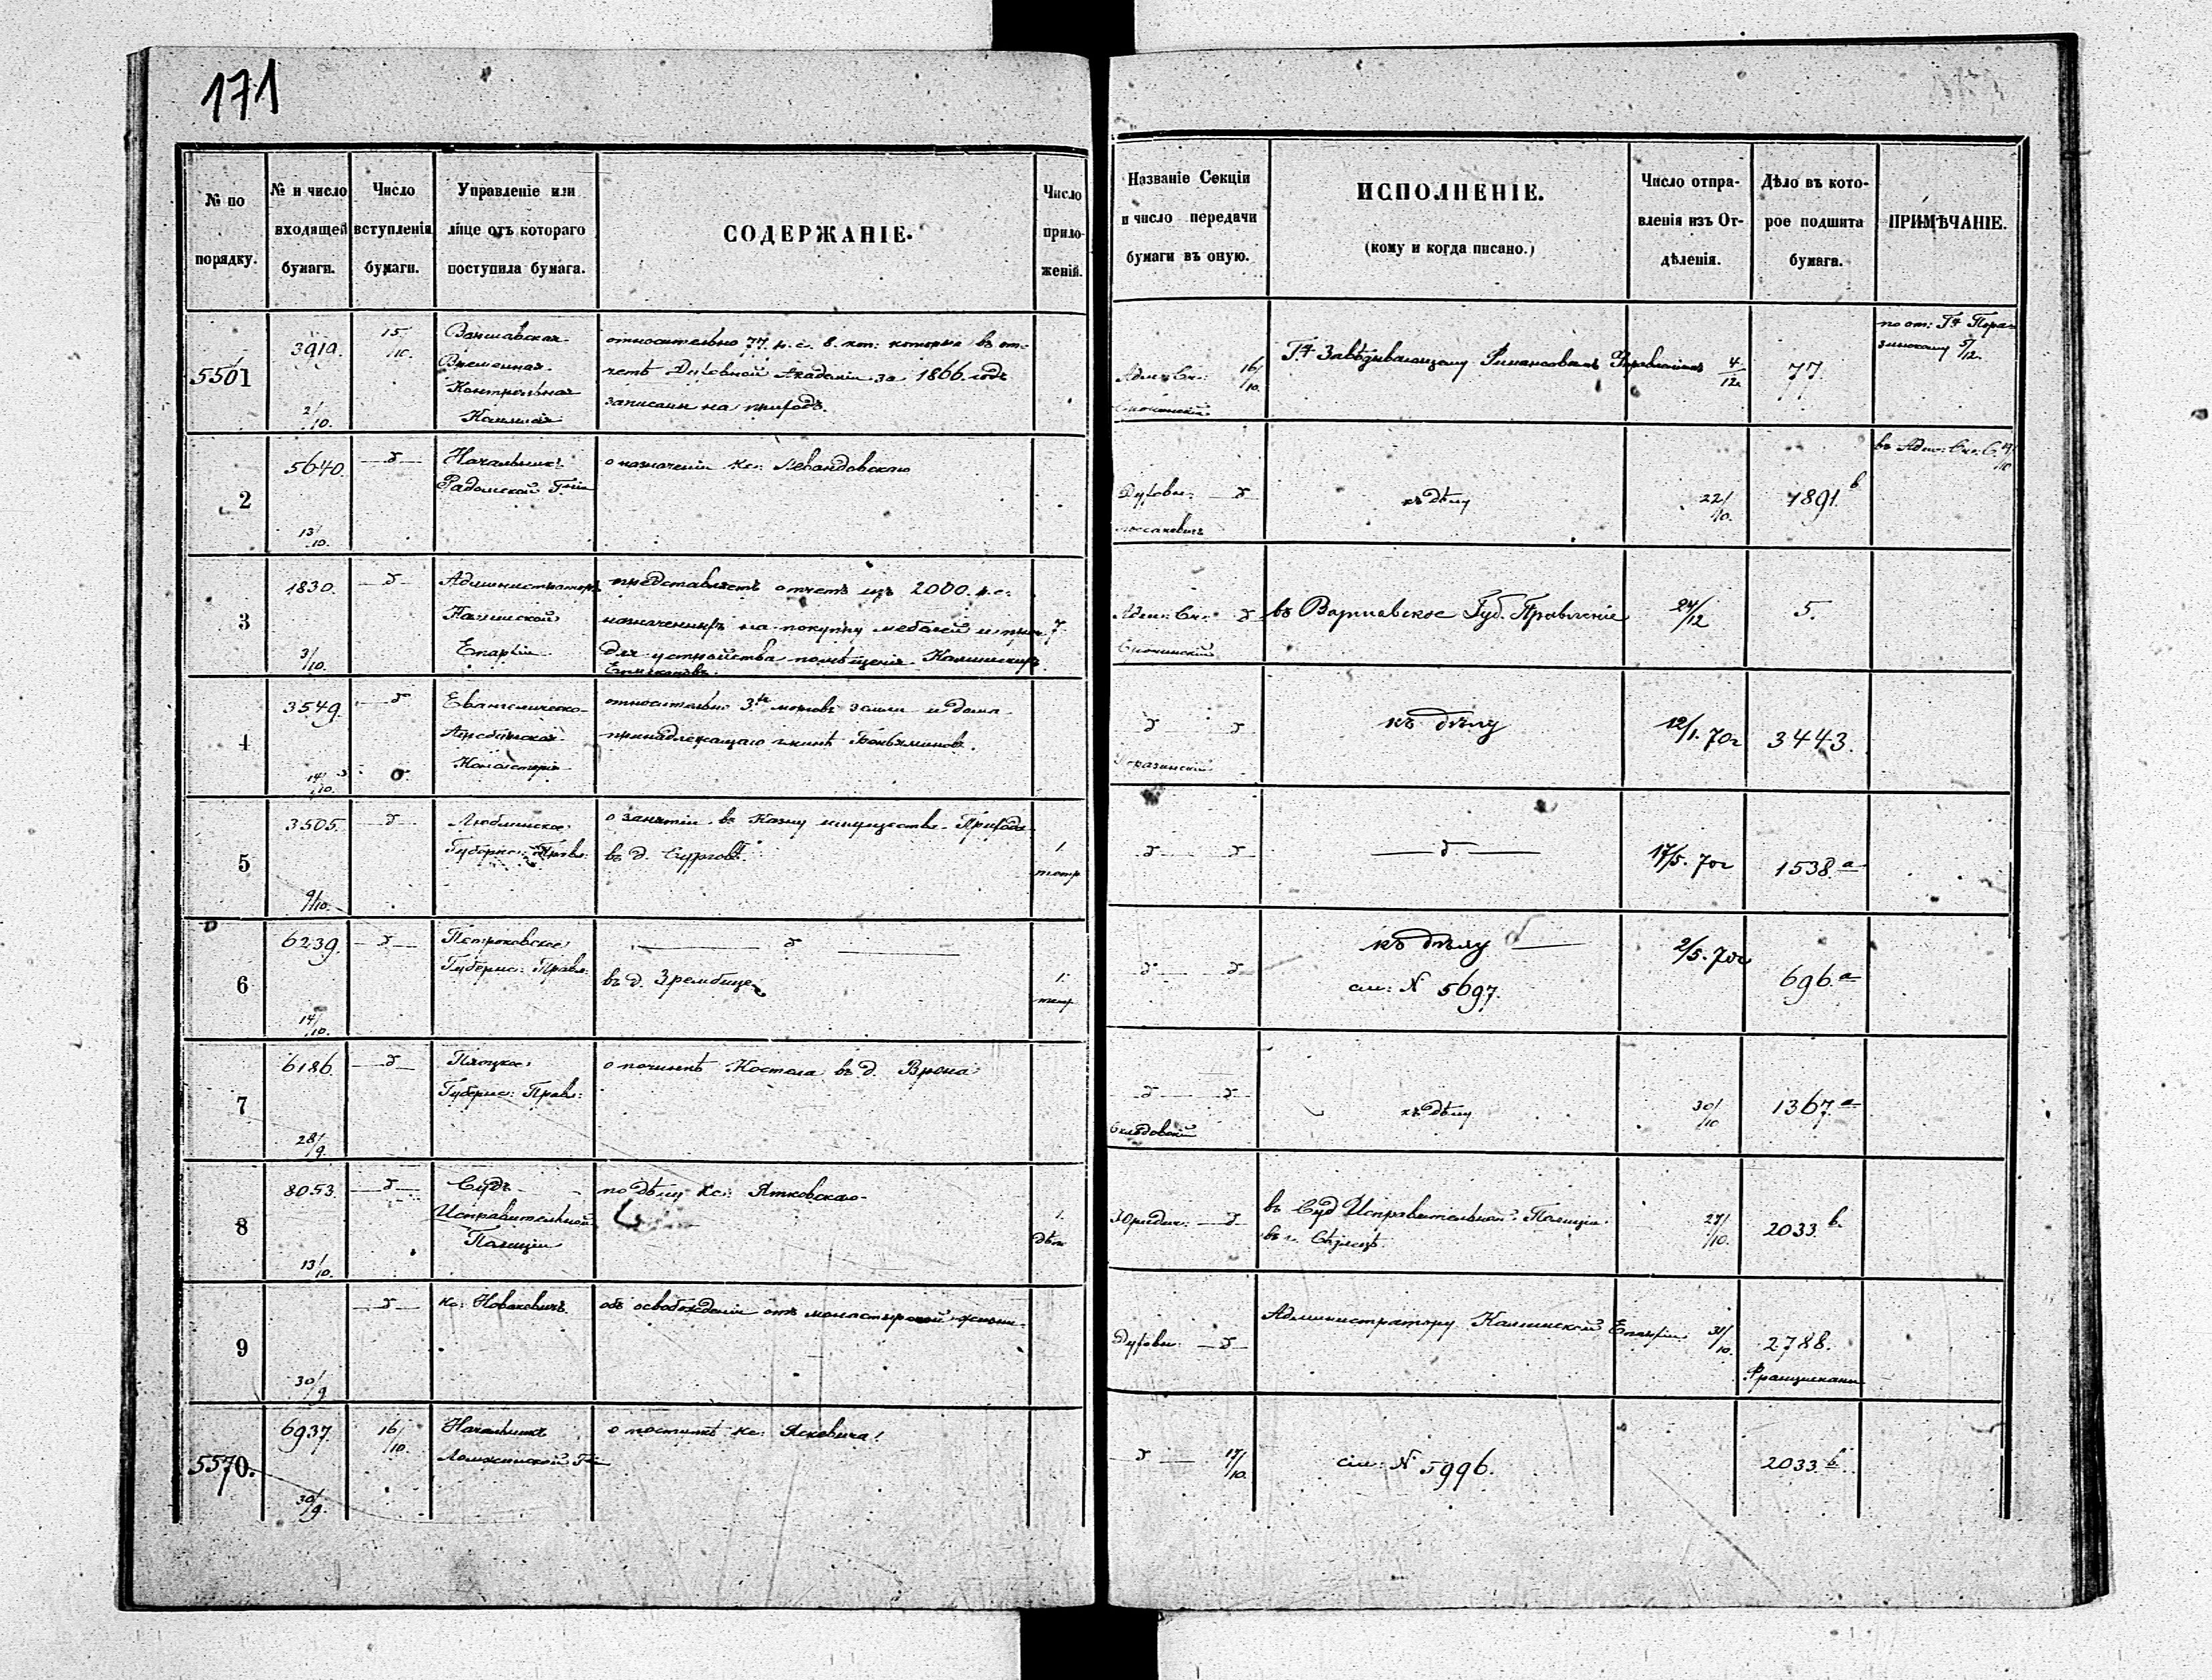 171
№ по порядку.
№ и число входящей бумаги.
Число вступленія бумаги.
Управленіе или лице отъ котораго поступила бумага.
СОДЕРЖАНІЕ.
Число приложеній.
Названіе Секціи и число передачи бумаги въ оную.
ИСПОЛНЕНІЕ.
(кому и когда писано.)
Число отправленія изъ Отдѣленія.
Дѣло въ которое подшита бумага.
ПРИМѢЧАНІЕ.
5501
3919.
2/10.
15/10.
Варшавская
Временная
Контрольная
относительно 77. р. с. 8. коп: которыя въ от-
четѣ Духовной Академіи за 1866. годъ
записаны на приходъ.
16/10.
Гну Завѣдывающему Финансовымъ Управленіемъ
4/12
77.
5/12.
2
5640.
13/10.
Начальникъ
Радомской Гніи
о назначеніи кс: Левандовскаго
Духовн:
къ дѣлу
22/10.
1891 в
3
1830.
3/10.
Администраторъ
Калишской
Епархіи
представляетъ отчетъ изъ 2000. р. с.
назначенныхъ на покупку мебелей и проч.
для устройства помѣщенія Калишскихъ
7
Адм: Ск:
въ Варшавское Губ. Правленіе
24/12
5.
4
3549.
14/10.
Евангелическо-
Аугсбургская
Консисторія
относительно 3хъ морговъ земли и дома
принадлежащаго гминѣ
къ дѣлу
12/1. 70г
3443.
5
3505.
9/10.
Люблинское
Губерн: Правл:
о занятіи въ Казну имущества Прихода
въ д.
1.
17/5. 70г
1538 а
6
6239.
14/10.
Петроковское
Губернс: Правл:
въ д. Зрембице
1.
къ дѣлу
см: N 5697.
2/5. 70г
696. а
7
6186.
28/9.
Плоцкое
Губернс: Правл:
о починкѣ Костела въ д. Врона
къ дѣлу
30/10
1367. а
8
8053.
13/10.
Судъ
Исправительной
Полиціи
по дѣлу кс: Ятковскаго
1.
Юридич:
въ Судъ Исправительной Полиціи
27/10.
2033 в.
9
30/9
кс: Новаковичъ
объ освобожденіи отъ монастырской жизни.
Духовн:
Администратору Калишской Епархіи
31/10.
2788.
Францискане
5570.
6937.
30/9.
16/10.
Начальникъ
Ломжинской Гніи
о поступкѣ кс: Ясковича
17/10.
см: N 5996.
2033. в.